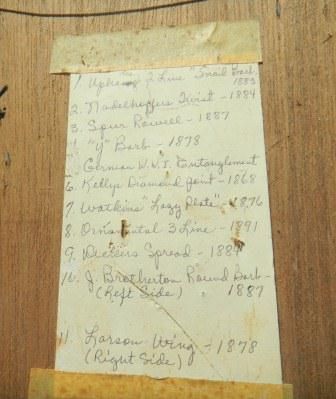 1. Upham 2 Line Snail Barb
1883
2. Nadelhoffers Twist - 1884
3. Spur Rowell - 1887
4. "Y" Barb - 1878
German W.W.I. Entanglement
6. Kellys Diamond Point - 1868
7. Watkins "Lazy Plate" - 1876
8. Ornamental 3 Line - 1891
9. Deckers Spread - 1884
10. J. Brotherton Round Barb -
(Left Side) 1887
11. Larson Wing - 1878
(Right Side)